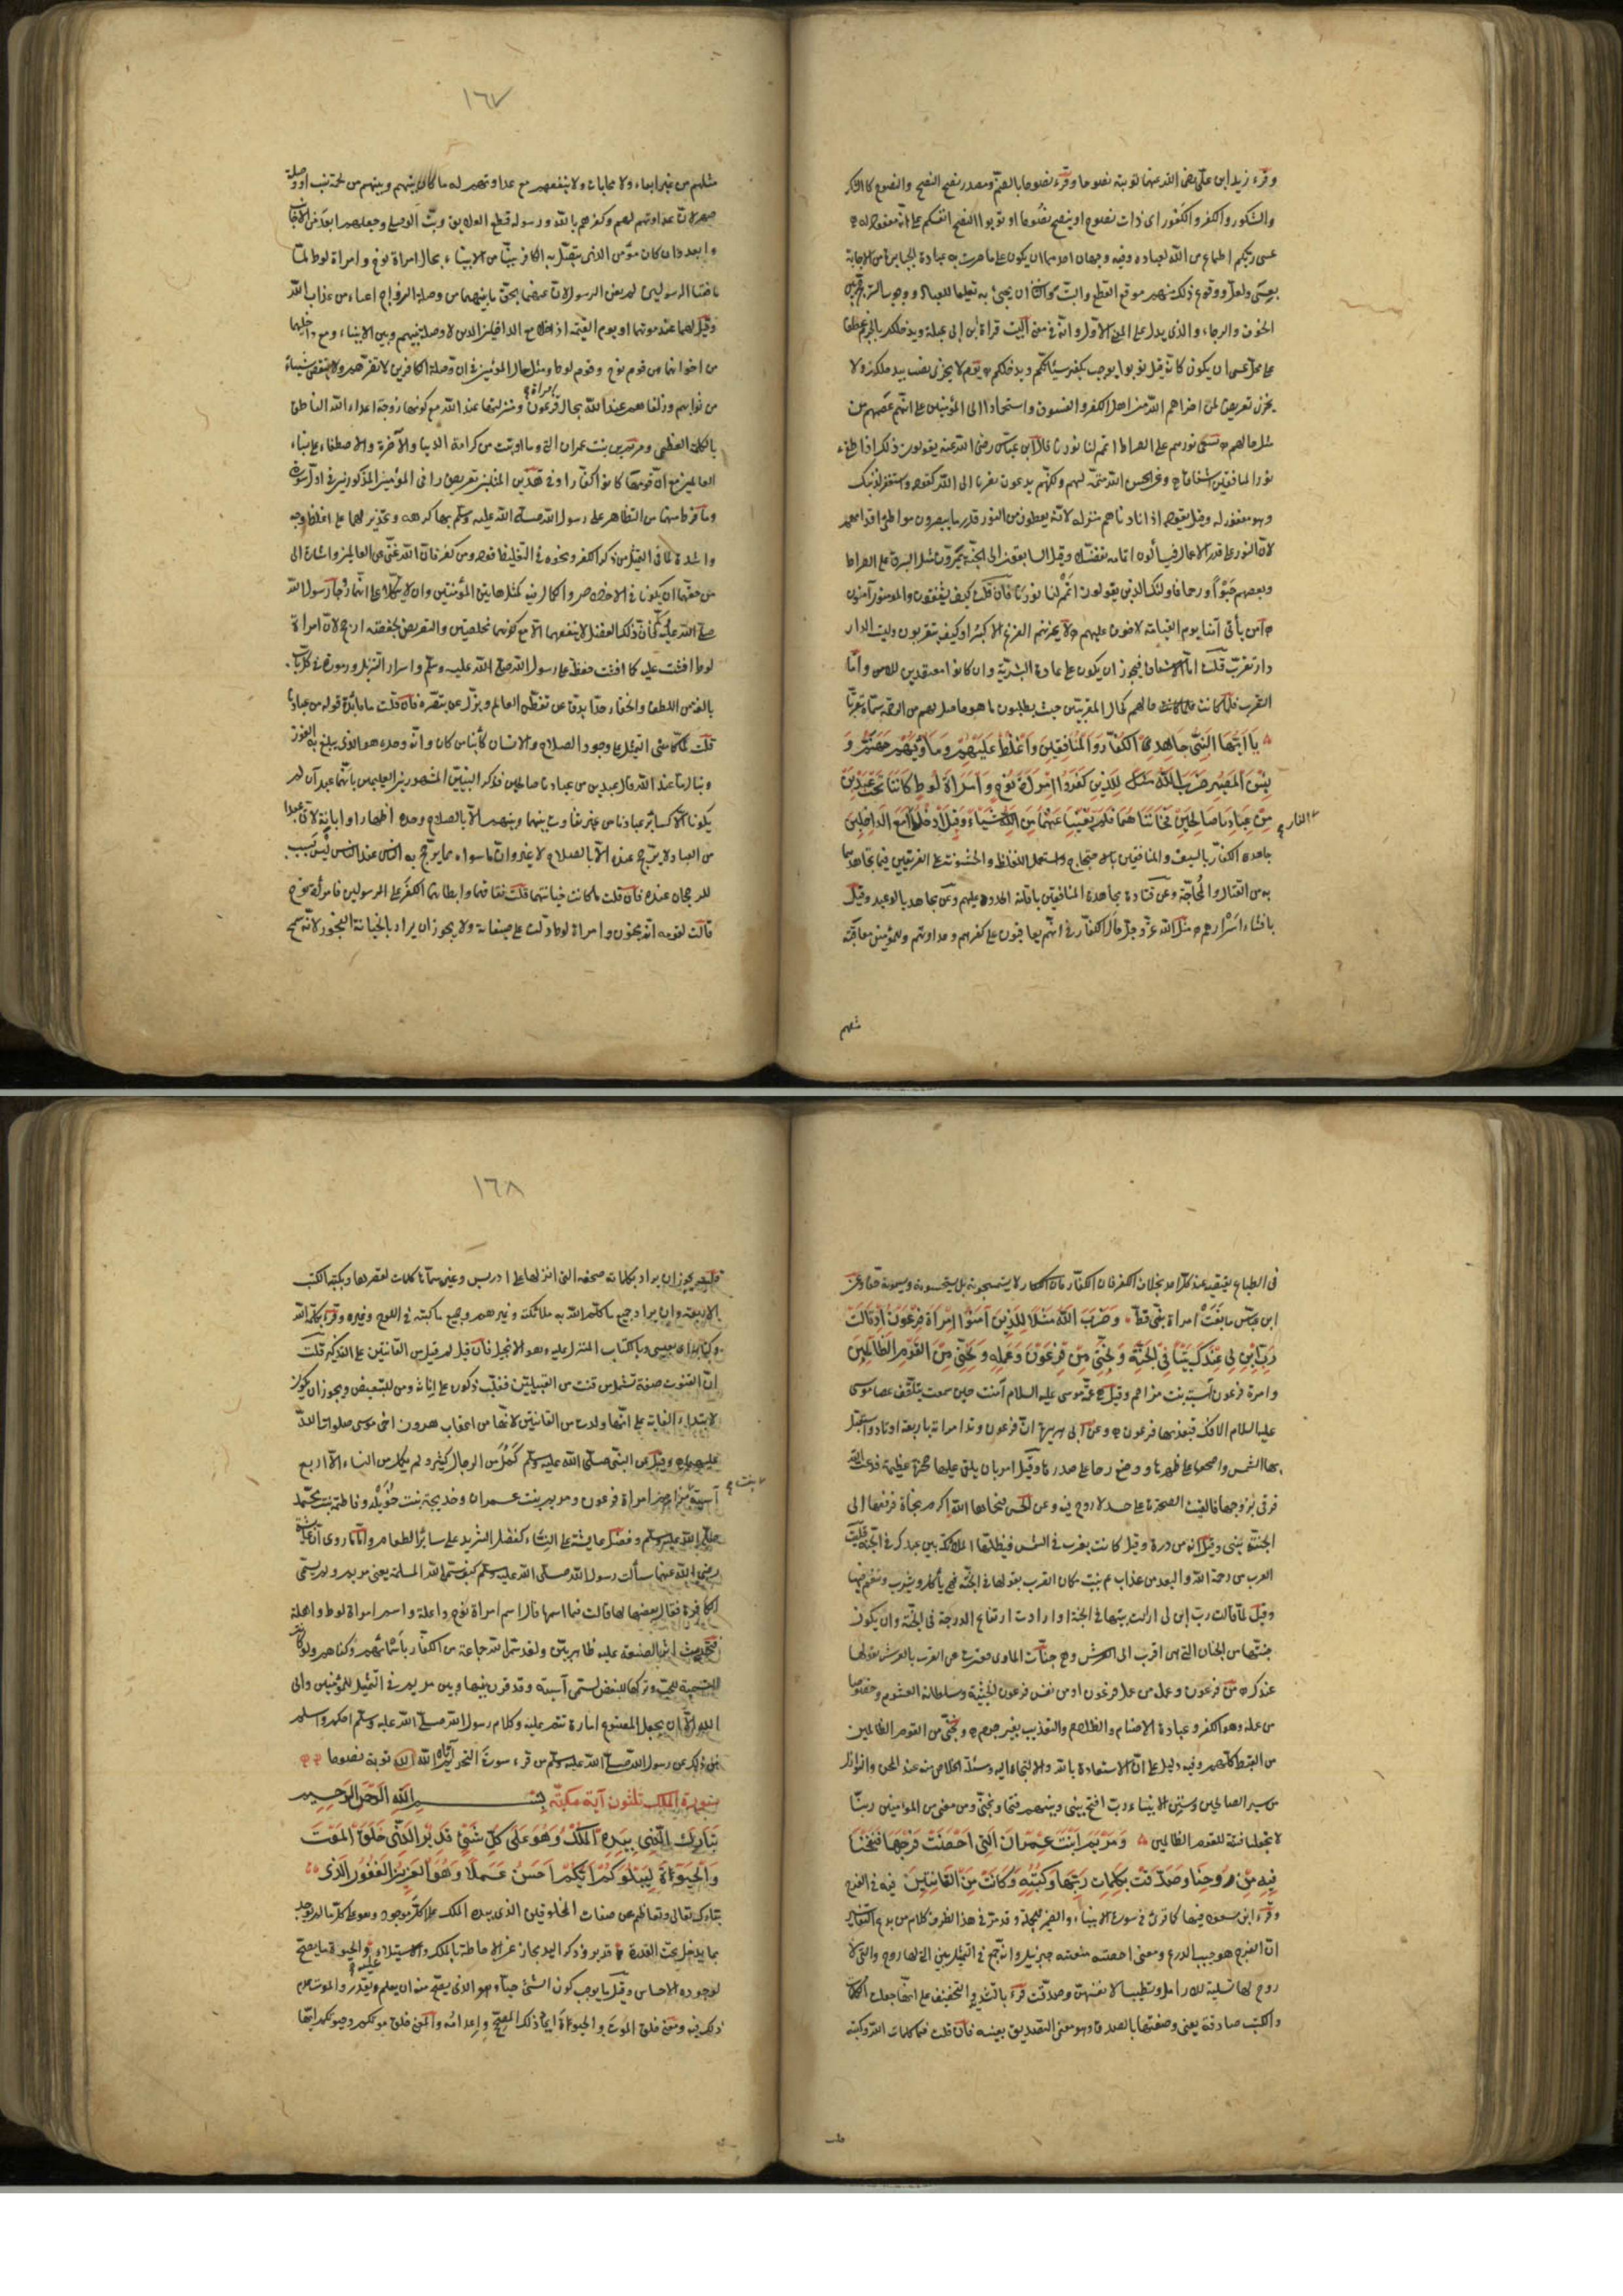 وقرء زيد ابن علي رضى الله عنهما توبة نصوحا وقرء نصوحا بالضم ومصدر نصح النصح والنصوح كالشكر
والشكور والكفر والكفور اى ذات نصوح او ينصح نصوحا او توبوا لنصح انفسكم على انه مفعول له
عسى ربكم اطماع من الله لعباده وفيه وجهان احدهما ان يكون على ما جرت به عادة الجبابرة من الاجابة
بعسى ولعل ووقوع ذلك منهم موقع القطع والبت والثانى ان يجئ به تعليما للعباد وجوب الترجح بين
الخوف والرجاء والذى يدل على المعنى الاول وانه فى معنى البت قراءة ابن ابى عبلة ويدخلكم بالجزم عطفا
على محل عسى ان يكون كانه قيل توبوا يوجب تكفير سيئاتكم ويدخلكم يوم لا يخزى نصب بيدخلكم ولا
يخزى تعريض لمن اخزاهم الله من اهل الكفر والفسوق واستحمادا الى المؤمنين على انه عصمهم من
مثل حالهم يسعى نورهم على الصراط اتمم لنا نورنا قال ابن عباس رضى الله عنه يقولون ذلك اذا طفئ
نور المنافقين اشفاقا وعن الحسن الله متممه لهم ولكنهم يدعون تقربا الى الله كقوله واستغفر لذنبك
وهو مغفور له وقيل يقوله ادناهم منزلة لانهم يعطون من النور قدر ما يبصرون مواطئ اقدامهم
لان النور على قدر الاعمال فيسألون اتمامه تفضلا وقيل السابقون الى الجنة يمرون مثل البرق على الصراط
وبعضهم حبوا وزحفا فاولئك الذين يقولون اتمم لنا نورنا فان قلت كيف يشفقون والمؤمنون آمنون
ام من يأتى آمنا يوم القيامة لا خوف عليهم لا يحزنهم الفزع الاكبر او كيف يتقربون وليست الدار
دار تقرب قلت اما الاشفاق فيجوز ان يكون على عادة البشرية وان كانوا معتقدين للامن واما
التقرب فلما كانت حالهم كحال المتقربين حيث يطلبون ما هو حاصل لهم من الرحمة سماه تقربا
يا ايها النبى جاهد الكفار والمنافقين واغلظ عليهم ومأويهم جهنم و
بئس المصير ضرب الله مثلا للذين كفروا امرأة نوح وامرأة لوط كانتا تحت عبدين
من عبادنا صالحين فخانتاهما فلم يغنيا عنهما من الله شيئا وقيل ادخلا مع الداخلين
النار
جاهد الكفار بالسيف والمنافقين بالاحتجاج واستعمل الغلظة والخشونة على الفريقين فيما تجاهدهما
به من القتال والمحاجة وعن قتادة مجاهدة المنافقين باقامة الحدود عليهم وعن مجاهد بالوعيد وقيل
بافشاء اسرارهم مثل الله عز وجل حال الكفار فى انهم يعاقبون على كفرهم وعداوتهم للمؤمنين معاقبة
مثلهم
١٦٧
مثلهم من غير ابقاء ولا محاباة ولا ينفعهم مع عداوتهم له ما كان بينهم وبينهم من لحمة نسب او وصلة
صهر لان عداوتهم لهم وكفرهم بالله ورسوله قطع العلائق وبت الوصل وجعلهم ابعد من الاجانب
وابعد وان كان مؤمن الذى يتصل به الكافر نبيا من الانبياء بحال امراة نوح وامراة لوط لما
نافقتا الرسولين لم يغن الرسولان عنهما بحق ما بينهما من وصلة الزواج اغناء من عذاب الله
وقيل لهما عند موتهما او يوم القيمة ادخلا مع الداخلين الذين لا وصلة بينهم وبين الانبياء ومع داخليها
من اخوانهما من قوم نوح وقوم لوط ومثل حال المؤمنين فى ان وصلة الكافرين لا تضرهم ولا ينقص شيئا
من ثوابهم وزلفاهم عند الله بحال امراة فرعون ومنزلتها عند الله مع كونها زوجة اعداء الله الناطق
بالكلمة العظمى ومريم بنت عمران التى وما اوتيت من كرامة الدنيا والآخرة والاصطفاء على نساء
العالمين مع ان قومها كانوا كفارا وفى هذين المثلين تعريض بامى المؤمنين المذكورتين فى اول السورة
وما فرط منهما من التظاهر على رسول الله صلى الله عليه وسلم بما كرهه وتحذير لهما على اغلظ وجه
واشده لما فى التمثيل من ذكر الكفر ونحوه فى التغليظ قوله ومن كفر فان الله غنى عن العالمين واشارة الى
من حقهما ان يكونا فى الاخلاص والكمال فيه كمثل هاتين المؤمنتين وان لا يتكلا على انهما زوجا رسول الله
صلى الله عليه وسلم فان ذلك الفضل لا ينفعهما الا مع كونهما مخلصتين والتعريض بحفصة ارجح لان امراة
لوط افشت عليه كما افشت حفصة على رسول الله صلى الله عليه وسلم واسرار التنزيل ورموزه فى كل باب
بالغة من اللطف والخفاء حدا يدق عن تفطن العالم ويزل عن تبصره فان قلت ما فائدة قوله من عبادنا
قلت لما كان مبنى التمثيل على وجود الصلاح فى الانسان كائنا من كان وانه وحده هو الذى يبلغ به الفوز
وينال ما عند الله قال عبدين من عبادنا صالحين فذكر النبيين المشهورين العليمين بانهما عبدان لم
يكونا الا كسائر عبادنا من غير تفاوت بينهما وبينهم الا بالصلاح وحده اظهارا وابانة لان عبدا
من العباد لا يرجح عنده الا بالصلاح لا غير وان ما سواه مما يرجح به الناس عند الناس ليس بسبب
للرجحان عنده فان قلت ما كانت خيانتهما قلت نفاقهما وابطانهما الكفر على الرسولين فامرأة نوح
قالت لقومه انه مجنون وامراة لوط دلت على ضيفانه ولا يجوز ان يراد بالخيانة الفجور لانه سمج
فى الطباع نقيصة عند كل احد بخلاف الكفر فان الكفار لا يستسمجونه بل يستحسنونه ويسمونه حقا وعن
ابن عباس ما بغت امراة نبى قط وضرب الله مثلا للذين آمنوا امرأة فرعون اذ قالت
رب ابن لى عندك بيتا فى الجنة ونجنى من فرعون وعمله ونجنى من القوم الظالمين
وامرة فرعون آسية بنت مزاحم وقيل هى عمة موسى عليه السلام آمنت حين سمعت بتلقف عصا موسى
عليه السلام الافك فعذبها فرعون وعن ابى هريرة ان فرعون وتد امراته باربعة اوتاد واستقبل
بها الشمس واضجعها على ظهرها ووضع رحا على صدرها وقيل امر بان يلقى عليها صخرة عظيمة فدعت الله
فرقى بروحها فالقيت الصخرة على جسد لا روح فيه وعن الحسن فنجاها الله اكرم نجاة فرفعها الى
الجنة
العرب من رحمة الله والبعد من عذاب
وقيل لما قالت رب ابن لى اريت بيتها فى الجنة او ارادت ارتفاع الدرجة فى الجنة وان يكون
جنتها من الجنان التى هى اقرب الى العرش وهى جنات الماوى فعبرت عن القرب بالعرش بقولها
عندك من فرعون وعمله من عمل فرعون او من نفس فرعون الخبيثة وسلطانه الغشوم وخصوصا
من عمله وهو الكفر وعبادة الاصنام والظلم والتعذيب بغير جرم ونجنى من القوم الظالمين
من القبط كلهم وفيه دليل على ان الاستعاذة بالله والالتجاء اليه ومسئلة الخلاص منه عند المحن والنوازل
من سير الصالحين وسنن الانبياء رب افتح بينى وبينهم فتحا ونجنى ومن معى من المؤمنين ربنا
لا تجعلنا فتنة للقوم الظالمين ومريم ابنت عمران التى احصنت فرجها فنفخنا
فيه من روحنا وصدقت بكلمات ربها وكتبه وكانت من القانتين فيه فى الفرج
وقرء ابن مسعود فيها كما قرئ فى سورة الانبياء والضمير للجملة وقد مر فى هذا الظرف كلام من بدع التفاسير
ان الفرج هو جيب الدرع ومعنى احصنته منعته جبريل وانه جمع فى التمثيل بين التى لها زوج والتى لا
زوج لها تسلية للارامل وتطييبا لانفسهن وصدقت قرء بالتشديد والتخفيف على انها جعلت الكلمات
والكتب صادقة يعنى وصفتها بالصدق وهو معنى التصديق بعينه فان قلت فما كلمات الله وكتبه
قلت
١٦٨
قلت يجوز ان يراد بكلماته صحفه التى انزلها على ادريس وغيره سماها كلمات لقصرها وبكتبه الكتب
الاربعة وان يراد جميع ما كلم الله به ملائكته وغيرهم وجميع ما كتبه فى اللوح وغيره وقرء بكلمة الله
وكتابه اى بعيسى وبالكتاب المنزل عليه وهو الانجيل فان قيل لم قيل من القانتين على التذكير قلت
ان القنوت صفة تشمل من قنت من القبيلين فغلب ذكوره على اناثه ومن للتبعيض ويجوز ان يكون
لابتداء الغاية على انها ولدت من القانتين لانها من اعقاب هرون اخى موسى صلوات الله
عليهما وقيل عن النبى صلى الله عليه وسلم كمل من الرجال كثير ولم يكمل من النساء الا اربع
بنت
آسية مزاحم امراة فرعون ومريم بنت عمران وخديجة بنت خويلد وفاطمة بنت محمد
صلى الله عليه وسلم وفضل عايشة على النساء كفضل الثريد على سائر الطعام واما ما روى ان عائشة
رضى الله عنها سألت رسول الله صلى الله عليه وسلم كيف سمى الله المسلمة يعنى مريم ولم يسمى
الكافرة فقال بغضا لها قالت فما اسمها قال اسم امراة نوح واعلة واسم امراة لوط واهلة
فحديث اثر الصنعة عليه ظاهر بين ولقد سمى الله جماعة من الكفار باسمائهم وكناهم ولو كانت
التسمية للحب وتركها للبغض لسمى آسية وقد قرن بينها وبين مريم فى التمثيل للمؤمنين وابى
الله الا ان يجعل للمصنوع امارة تنم عليه وكلام رسول الله صلى الله عليه وسلم احكم واسلم
من ذلك عن رسول الله صلى الله عليه وسلم من قرء سورة التحريم آتاه الله توبة نصوحا
سورة الملك ثلثون آية مكية بسم الله الرحمن الرحيم
تبارك الذى بيده الملك وهو على كل شئ قدير الذى خلق الموت
والحيوة ليبلوكم ايكم احسن عملا وهو العزيز الغفور الذى
تبارك تعالى وتعاظم عن صفات المخلوقين الذى بيده الملك على كل موجود وهو على كل ما لم يوجد
مما يدخل تحت القدرة قدير وذكر اليد مجاز عن الاحاطة بالملك والاستيلاء عليه والحيوة ما يصح
بوجوده الاحساس وقيل ما يوجب كون الشئ حيا وهو الذى يصح منه ان يعلم ويقدر والموت عدم
ذلك فيه ومعنى خلق الموت والحيوة ايجاد ذلك المصحح واعدامه والمعنى خلق موتكم وحيوتكم ايها